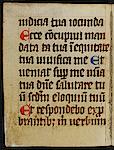 iudicia tua iocunda
Ecce cōcupiui man
data tua in equitate
tua uiuifica me Et
ueniat sup me mīa
tua dn̄e salutare tu
ū scdm̄ eloquiū tuū
Et respondebo exp
brantibꝫ m̄ uerbum